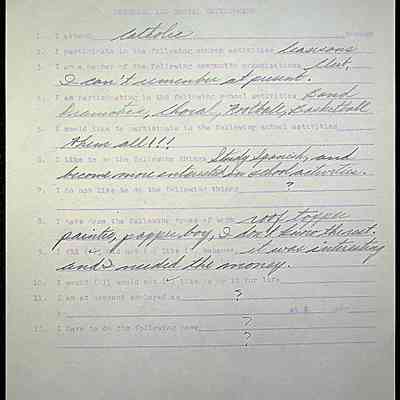 PERSONAL AND SOCIAL DEVELOPMENT
1. I attend Catholic church
2. I participate in the following church activities leasions
3. I am a member of the following community organizations
I can't remember at present.
4. I am participating in the following school activities Band
Dramatics, Choral, Football, Basketball
5. I would like to participate in the following school activities
them all!!!
6. I like to do the following things Study Spanish, and
become more interested in school activities.
7. I do not like to do the following things ?
8. I have done the following types of work roof topper
painter, papper boy, I don't know the rest.
9. I did not like it because it was interesting
and I needed the money.
10. I would would not like to do it for life
11. I am at present employed as ?
at $
12. I have to do the following home
?
?